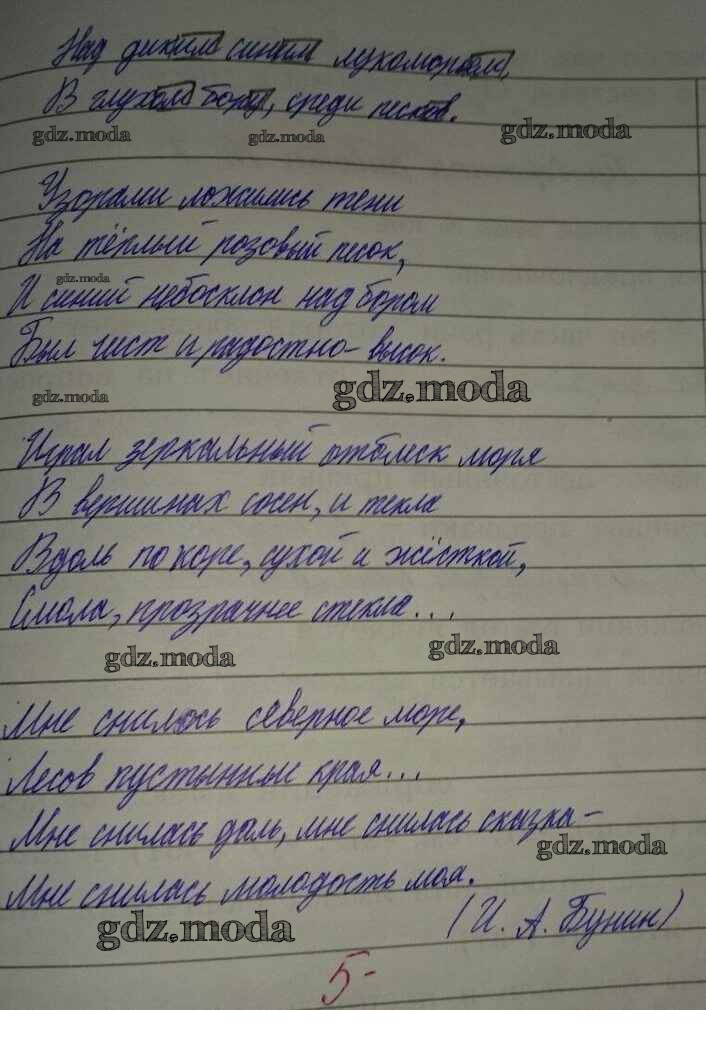 Над диким синим лукоморьем,
В глухом бору, среди песков.
gdz.moda gdz.moda gdz.moda
Узорами ложились тени
На тёплый розовый песок,
gdz.moda
И синий небосклон над бором
Был чист и радостно-высок.
gdz.moda gdz.moda
Играл зеркальный отблеск моря
В вершинах сосен, и текла
Вдоль по коре, сухой и жёсткой,
Смола, прозрачнее стекла...
gdz.moda gdz.moda
Мне снилось северное море,
Лесов пустынные края...
Мне снилась даль, мне снилась сказка-
gdz.moda
Мне снилась молодость моя.
gdz.moda (И. А. Бунин)
5-